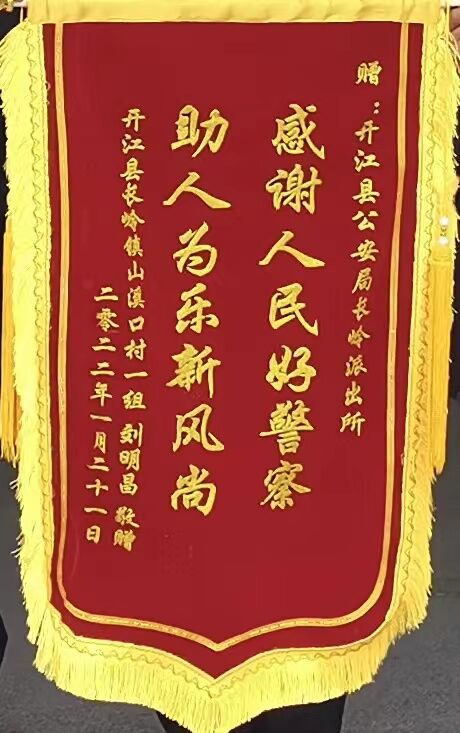 赠：开江县公安局长岭派出所
感谢人民好警察
助人为乐新风尚
开江县长岭镇山溪口村一组 刘明昌 敬赠
二零二二年一月二十一日